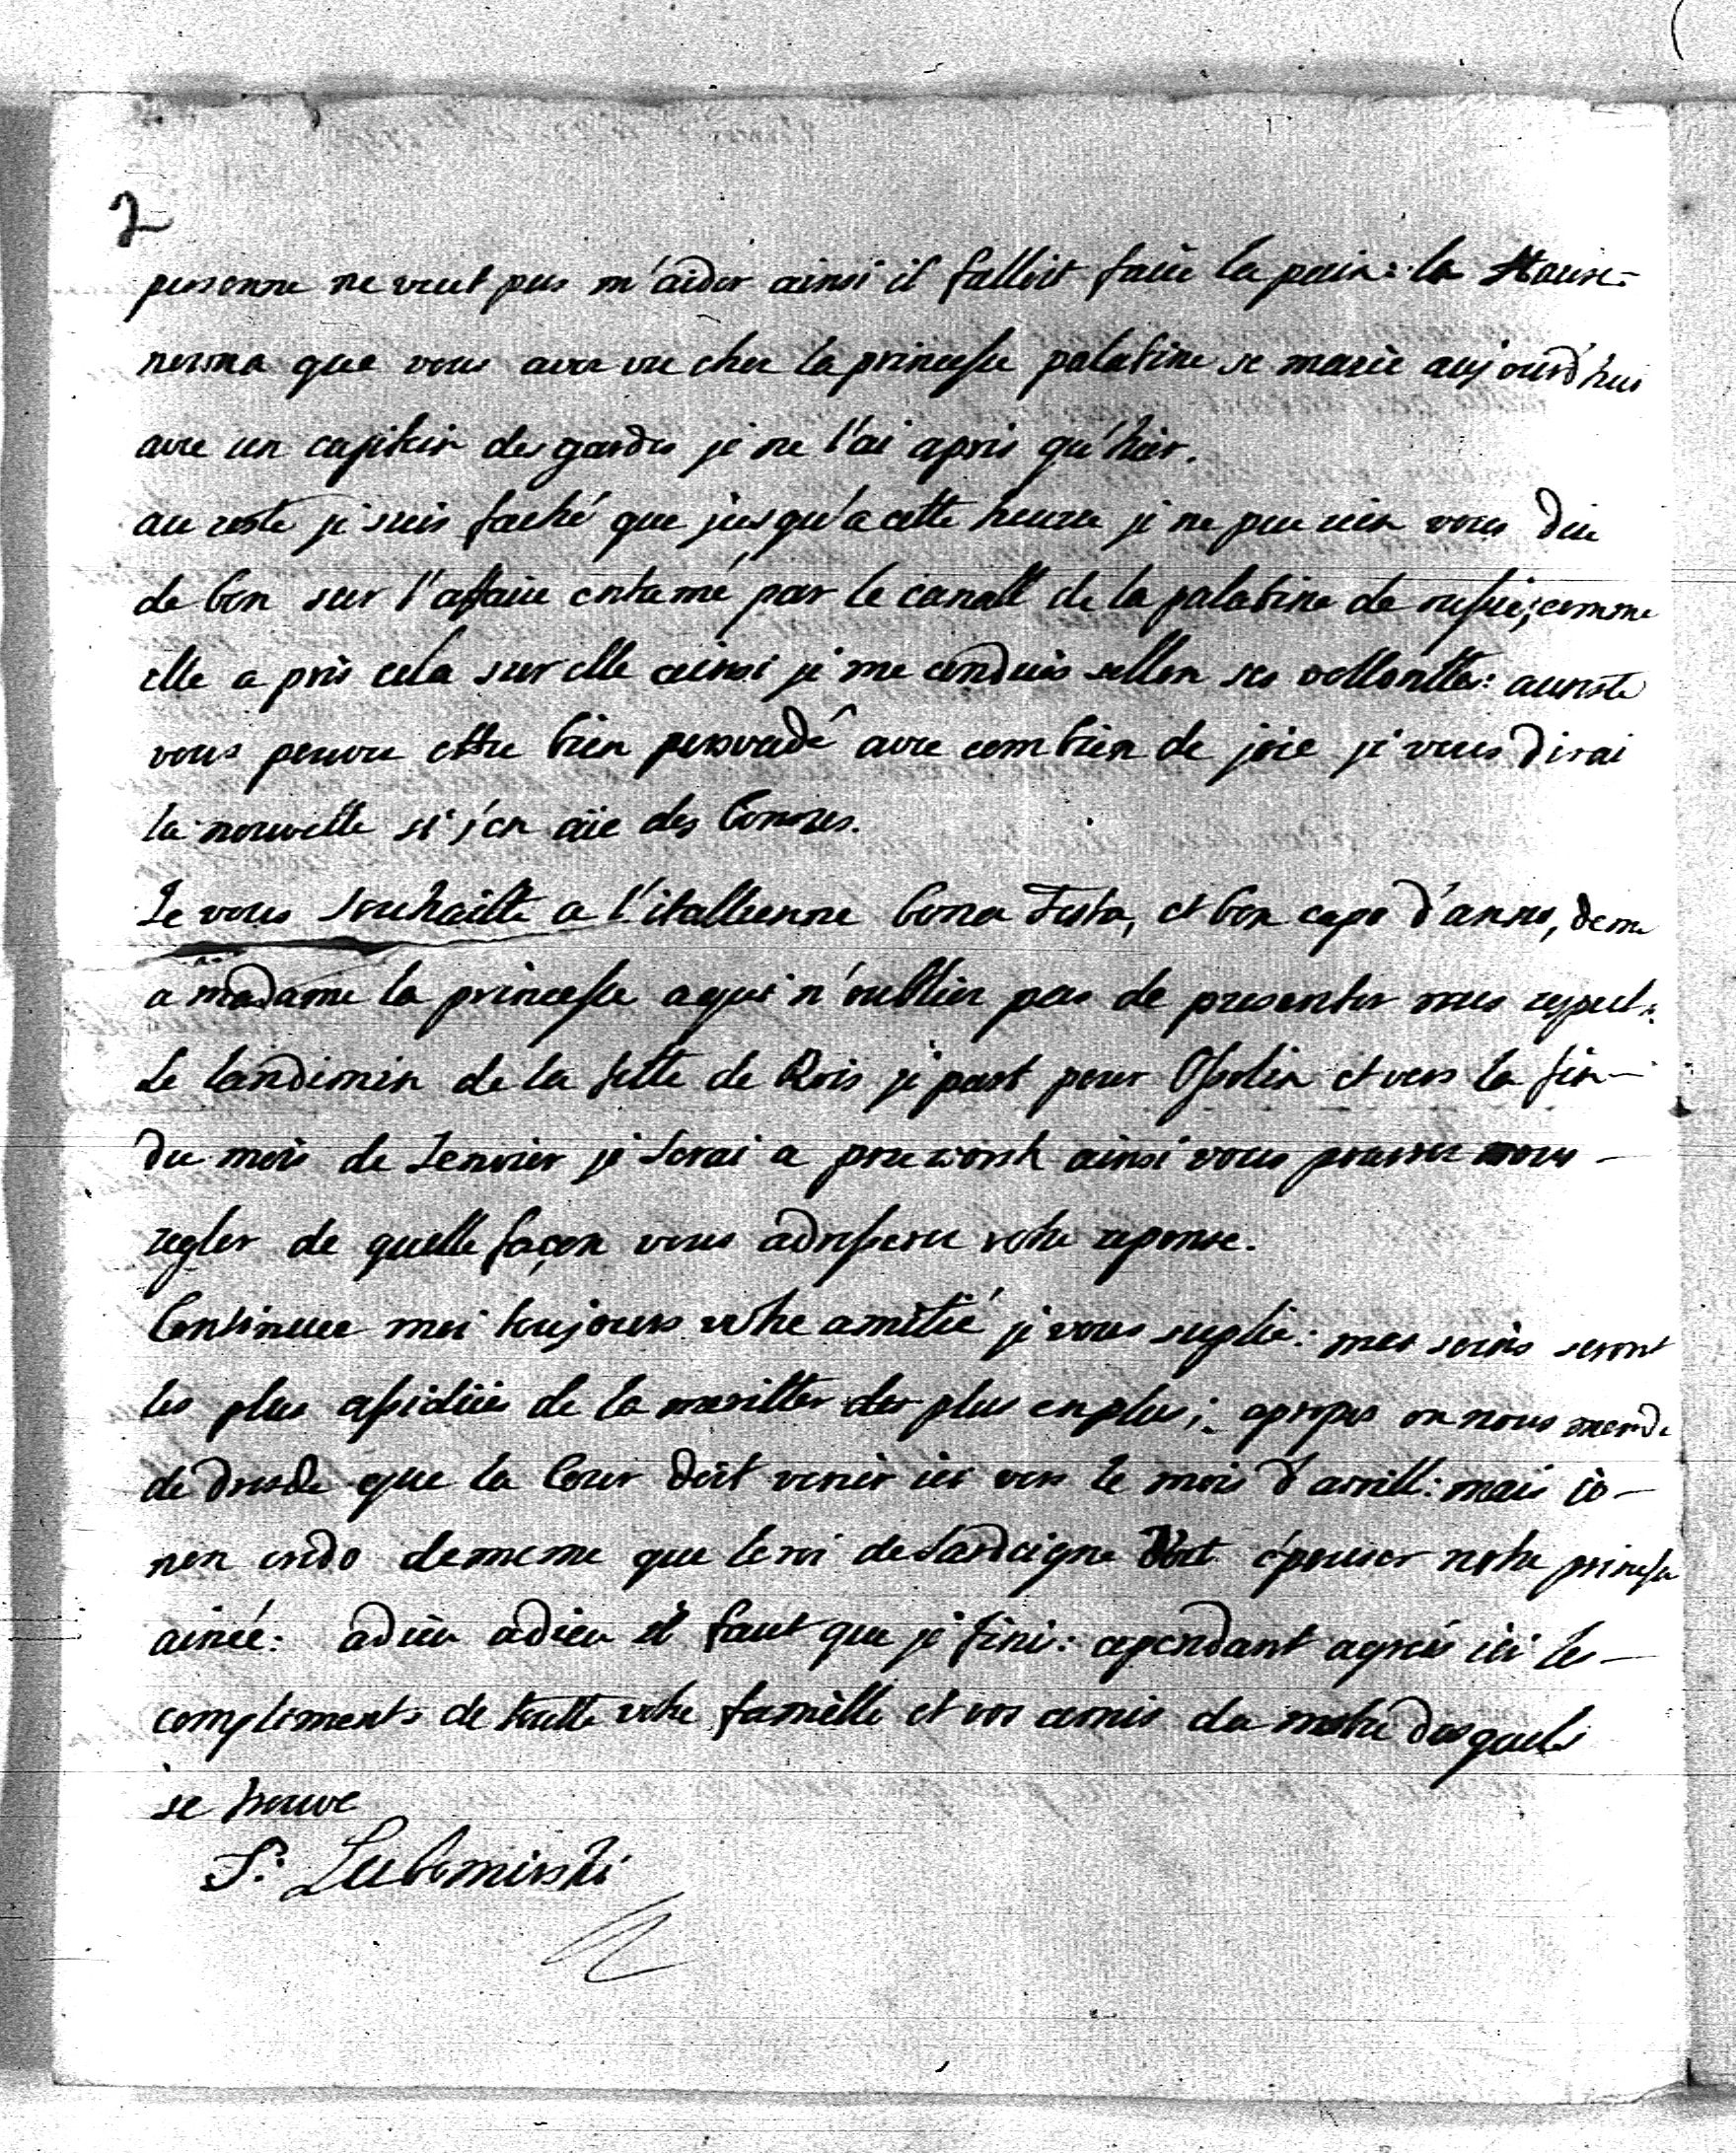 2
personne ne veut pas m'aider ainsi il falloit faire la paix: la
que vous avez vu chez la princesse palatine se marie aujourd'hui
avec un capitein des gardes je ne l'ai apris qu'hier.
au reste je suis faché que jusqu'a cette heure je ne peu rien vous dire
de bon sur l'affaire entamé par le canall de la palatine de russie; comme
elle a pris cela sur elle ainsi je me conduis sellon ses vollontter: aureste
vous pouvez ettre bien persvadé avec combien de joie je vous dirai
la nouvelle si j'en aïe des bonnes.
Je vous souhaitte a l'itallienne bona Festa, et bon capo d'anno,
a madame la princesse aqui n'oubliez pas de presenter mes respect:
Le landimin de la fette de Rois je part pour Opolin et vers la fin
du mois de Jenvier je serai a przeworsk ainsi vous pouvez vous
regler de quelle façon vous adresserez votre reponse.
Continuez moi toujours votre amitié je vous suplie: mes soins seront
les plus assidüés de la meritter de plus enplus; apropos on nous mende
de dresde que la Cour doit venir ici vers le mois d'avrill: mais io
non credo dememe que le roi de Sardaigne doit épouser notre princesse
ainée: adieu adieu il faut que je fini: cependant agreés ici les
compliments de toutte votre famille et vos amis du nombre desquels
se trouve
S: Lubomirski